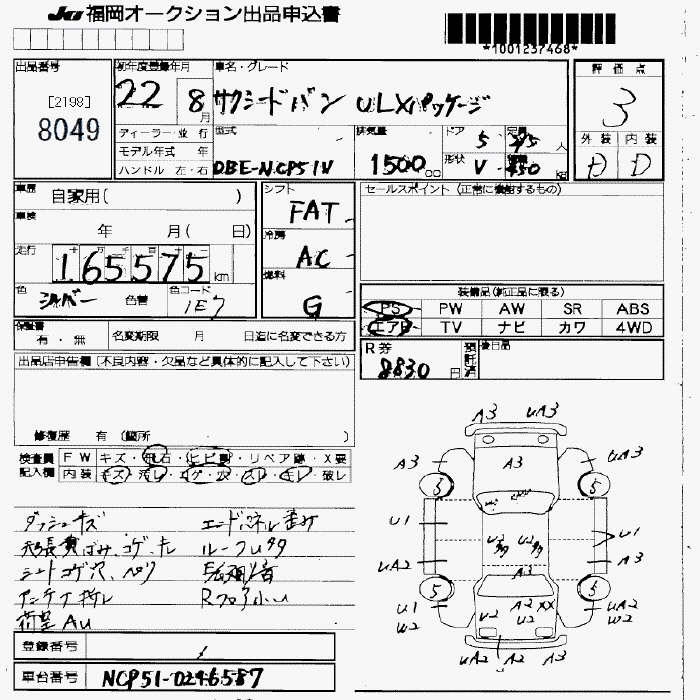 JU 福岡オークション出品申込書
*1001237468*
出品番号
[2198]
8049
初年度登録年月
22 8月
車名・グレード
サクシードバン ULXパッケージ
評価点
3
外装 内装
D
ディーラー・並行
モデル年式 年
ハンドル 左・右
型式
DBE-NCP51V
排気量
1500cc
ドア 5
形状 V
定員
人
車歴 自家用( )
車検 年 月( 日)
走行 165575 km
色 シルバー 色替 色コード 1E7
シフト FAT
冷房 AC
燃料 G
セールスポイント(正常に機能するもの)
装備品(純正品に限る)
PS PW AW SR ABS
エアB TV ナビ カワ 4WD
保証書 有・無 名変期限 月 日迄に名変できる方
R券 8830円
預託済
後日品
出品店申告欄(不良内容・欠品など具体的に記入して下さい)
修復歴 有(箇所 )
検査員記入欄
FW キズ・飛石・ヒビ・リペア跡・X要
内装 キズ・汚レ・コゲ・穴・スレ・キレ・破レ
ダッシュキズ
エンドパネル歪み
天張黄ばみ、コゲ、キレ
ルーフU多
シートコゲ穴、ヘタリ
アンテナ折レ
Rフロア小U
荷室AU
登録番号
車台番号 NCP51-0246587
A3 UA3
A3 A3 UA3
5 5
U1 U1
UA2 A3
5 5
U1 A2 XX UA2
W2 U2 U2 W2
UA2 A2 A3